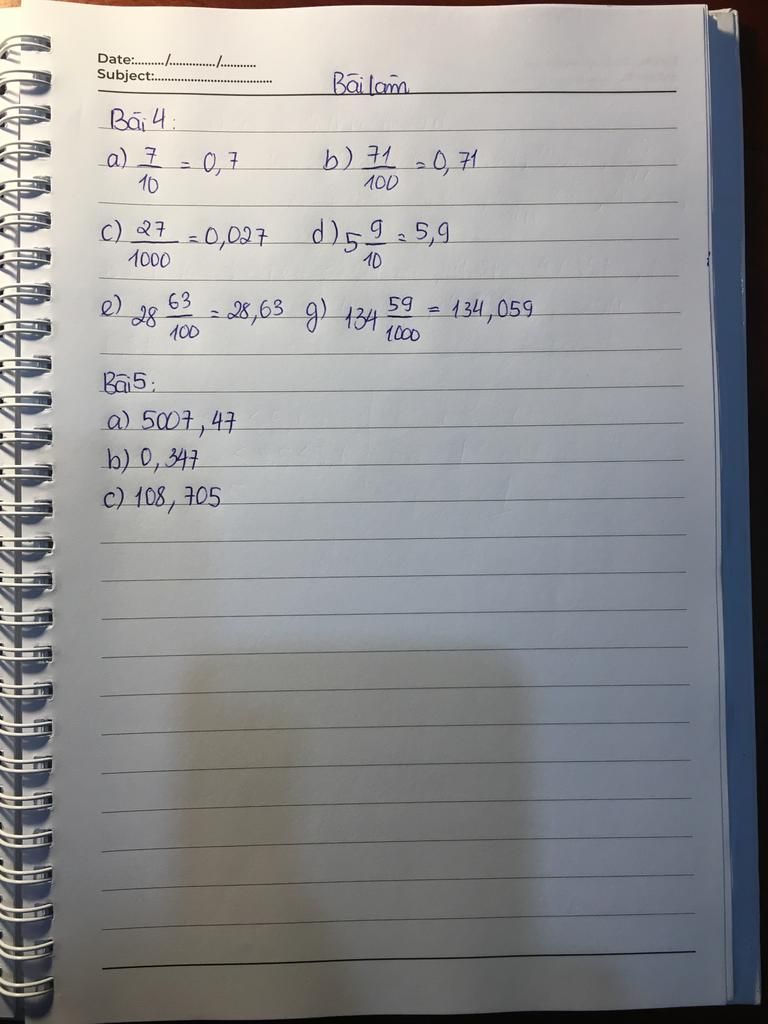 Date:........./............../..........
Subject:...................................
Bài làm
Bài 4:
a) 7/10 = 0,7 b) 71/100 = 0,71
c) 27/1000 = 0,027 d) 5 9/10 = 5,9
e) 28 63/100 = 28,63 g) 134 59/1000 = 134,059
Bài 5:
a) 5007,47
b) 0,347
c) 108,705